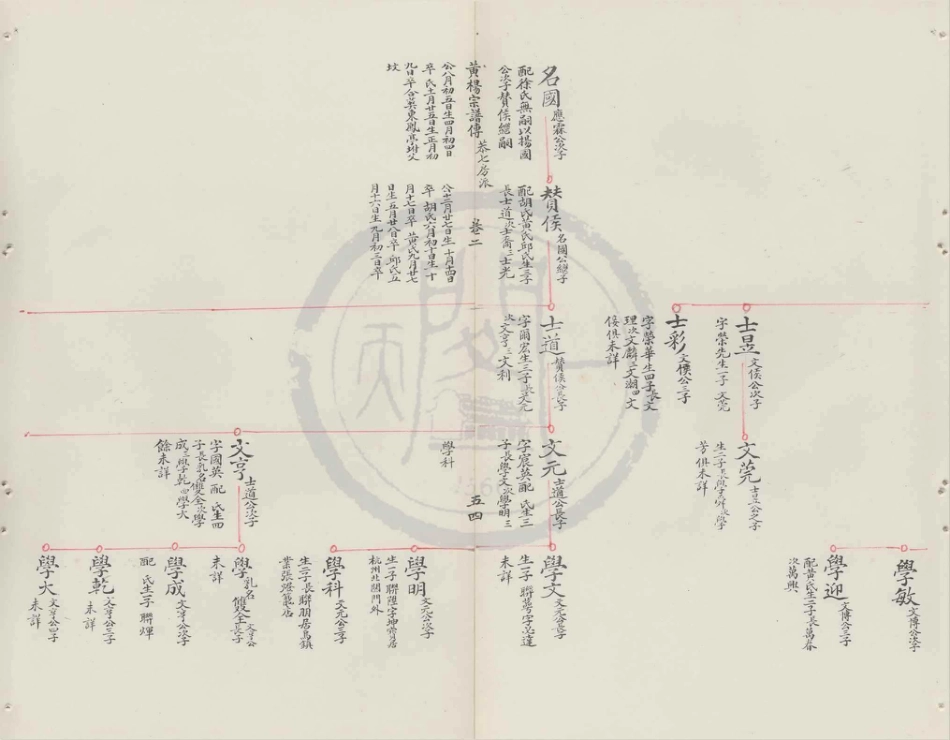 名國
應霖公次子
配徐氏無嗣以揚國
公次子賛侯繼嗣
黃楊宗譜傳
恭七房派
公八月初五日生四月初四日
卒 氏十二月廿五日生正月初
九日卒合葬東鳳亭坿父
坟
賛侯
名國公繼子
配胡氏黃氏邱氏生三子
長士道次士喬三士光
卷二
公十二月廿七日生十月十四日
卒 胡氏六月初十日生十
月十七日卒 黃氏九月廿七
日生五月廿八日卒 邱氏五
月十六日生九月初三日卒
士昱
文侯公次子
字榮先生一子 文莞
士彩
文侯公三子
字榮華生四子長文
理次文麟三文湖四文
倿俱未詳
士道
賛侯公長子
字爾宏生三子長文元
次文亨三文利
文莞
士昱公之子
芳俱未詳
文元
士道公長子
字宸英配 氏生三
子長學文次學明三
學科
五四
文亨
士道公次子
字國英 配 氏生四
子長乳名雙全次學
成三學乾四學大
餘未詳
學敏
文博公次子
學迎
文博公三子
配黃氏生二子長萬春
次萬興
學文
文元公長子
生一子 聯萼字必達
未詳
學明
文元公次子
生一子聯陞字坤霄居
杭州北關門外
學科
文元公三子
生二子長聯朋居烏鎮
業張燈籠店
學
乳名雙全
文亨公長子
未詳
學成
文亨公次子
配 氏生一子 聯輝
學乾
文亨公三子
未詳
學大
文亨公四子
未詳